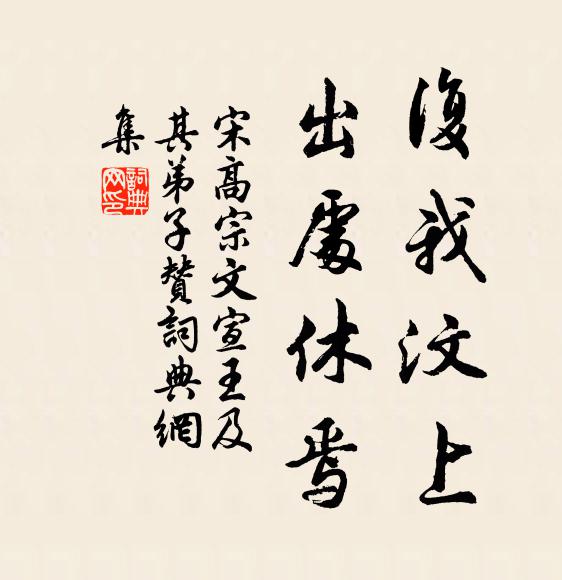 復我汶上
出處休焉
宋高宗文宣王及
其弟子贊詞典網
集
詞典網印